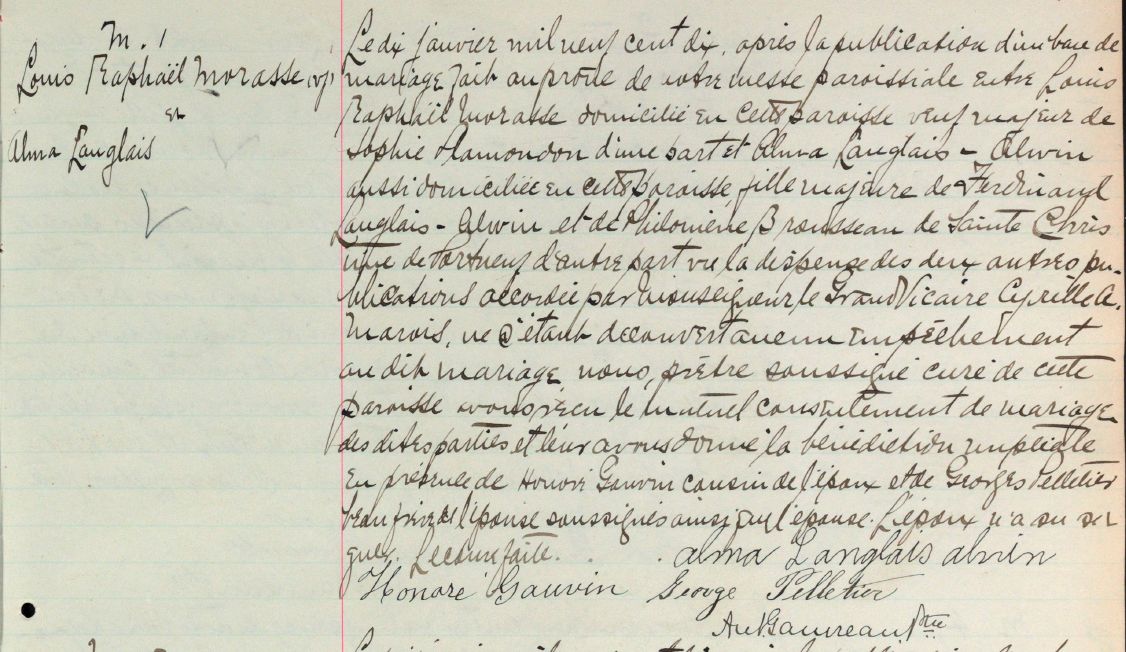 M. 1
Louis Raphaël Morasse, v f
et
Alma Langlais
Le dix janvier mil neuf cent dix, après la publication d'un banc de
mariage fait au prône de notre messe paroissiale entre Louis
Raphaël Morasse domicilié en cette paroisse veuf majeur de
Sophie Hamondon d'une part et Alma Langlais - Alwin
aussi domiciliée en cette paroisse, fille majeure de Ferdinand
Langlais - Alwin et de Philomène Brousseau de Sainte Chris
tine de Portneuf d'autre part vu la dispense des deux autres pu-
blications accordée par Monseigneur le Grand Vicaire Cyrille A.
Marois, ne s'étant découvert aucun empêchement
au dit mariage nous, prêtre soussigné curé de cette
paroisse avons reçu le mutuel consentement de mariage
des dites parties et leur avons donné la bénédiction nuptiale
en présence de Honoré Gauvin cousin de l'époux et de Georges Pelletier
beau frère de l'épouse soussignés ainsi que l'épouse. L'époux n'a su si
gner. Lecture faite. Alma Langlais alvin
Honoré Gauvin George Pelletier
Gauvreau Ptre